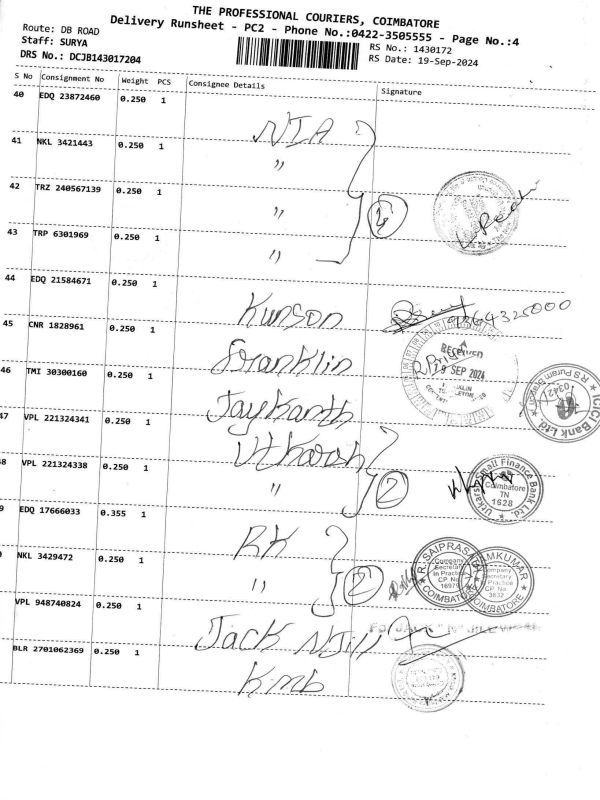 THE PROFESSIONAL COURIERS, COIMBATORE
Delivery Runsheet - PC2 - Phone No.:0422-3505555 - Page No.:4
Route: DB ROAD
Staff: SURYA
DRS No.: DCJB143017204
RS No.: 1430172
RS Date: 19-Sep-2024
S No Consignment No Weight PCS Consignee Details Signature
40 EDQ 23872460 0.250 1 NIA
41 NKL 3421443 0.250 1 "
42 TRZ 240567139 0.250 1 " 4
43 TRP 6301969 0.250 1 "
44 EDQ 21584671 0.250 1 Kunson
45 CNR 1828961 0.250 1 Franklin
RECEIVED
19 SEP 2024
46 TMI 30300160 0.250 1 Jaykanth
RS Puram Branch
ICICI Bank Ltd
47 VPL 221324341 0.250 1 Utkarsh
8 VPL 221324338 0.250 1 " 2
Utkarsh Small Finance Bank Ltd.
Coimbatore
TN
1628
9 EDQ 17666033 0.355 1 RK
NKL 3429472 0.250 1 " 2
R. SAIPRASA
Company
Secretary
In Practice
CP. No
COIMBATORE
MKUMAR
Company
Secretary
Practice
CP. No
3832
COIMBATORE
VPL 948740824 0.250 1 Jack N Jill
For JACK "N" JILL
BLR 2701062369 0.250 1 Kmb